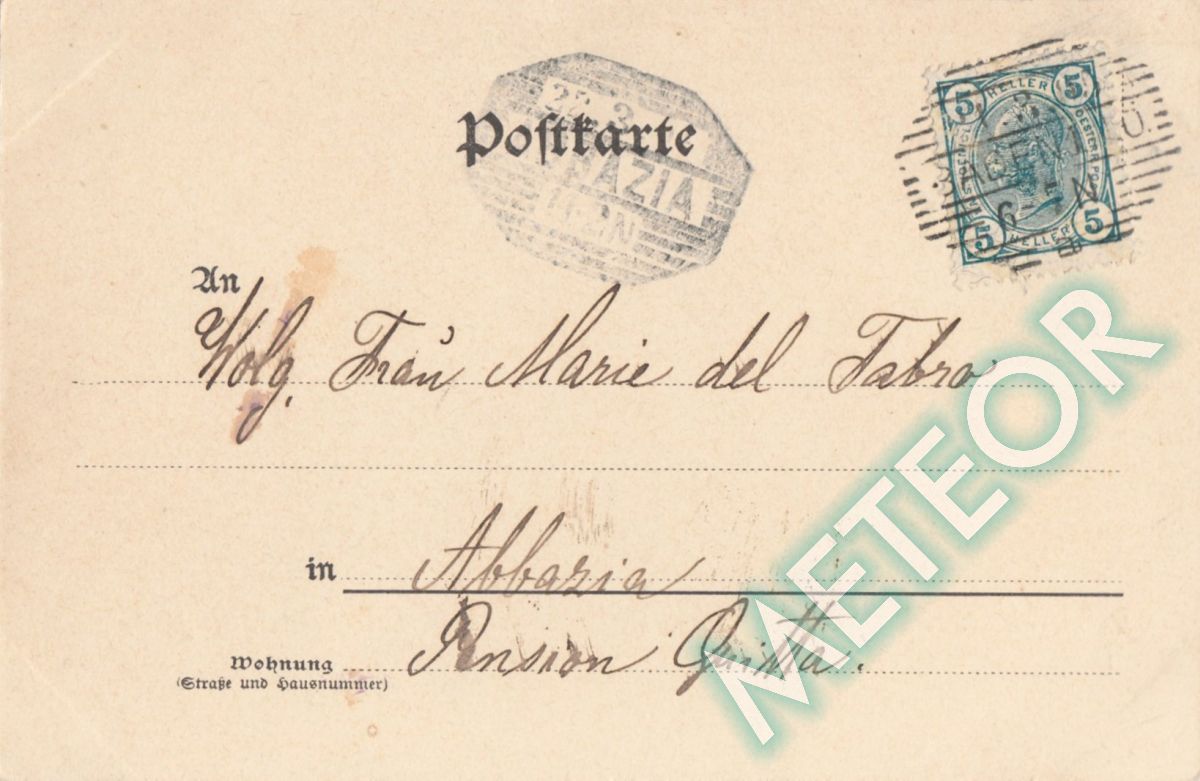 Postkarte
22 3
5 HELLER 5
5 HELLER 5
6-
N
An
Wolg. Frau Marie del Fabro
in Abbazia
Wohnung Pension Quitta.
(Straße und Hausnummer)
METEOR